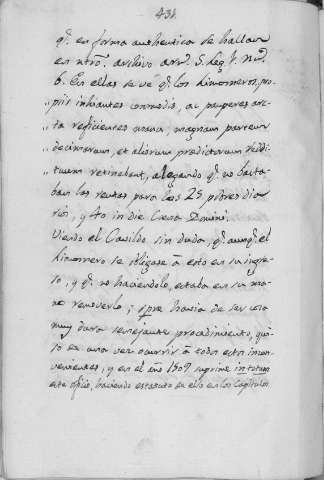 431.
q.e en forma authentica se hallan
en ntrō. archivo arm. S. Leg. 1. Nº.
6. En ellas se vé q.e los limosneros, pro-
priis inhiantes commodis, ac pauperes arc-
ta reficientes mensa, magnam partem
decimarum, et aliorum predictorum reddi-
tuum retinebant, alegando q.e no basta-
ban las rentas para los 25 pobres dia-
rios, y 40 in die Cena Domini.
Viendo el Cavildo sin duda, q.e aunq.e el
limosnero se obligase á esto en su ingre-
so, y q.e no haciendolo, estaba en su ma-
no removerlo; spre. havia de ser cosa
muy dura semejante procedimiento, qui-
so de una vez ocurrir á todos estos incon-
venientes, y en el año 1307 suprime in totum
este oficio, haciendo estatuto de ello en los Capitulos